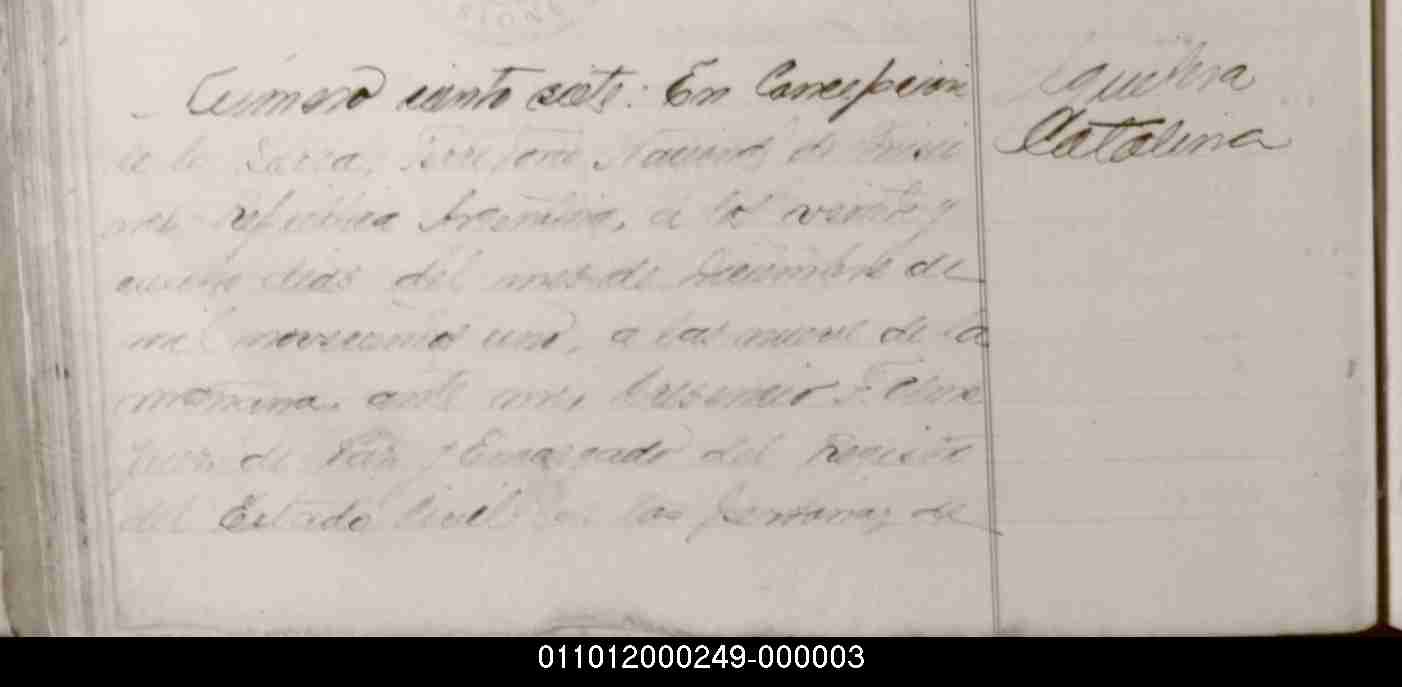 Número ciento siete: En Concepción
de la Sierra, Territorio Nacional de Misio
nes República Argentina, a los veinte y
cuatro dias del mes de Diciembre de
mil novecientos uno, a las nueve de la
mañana, ante mi, Cresencio F.
Juez de Paz y Encargado del Registro
del Estado Civil de las personas de
Aguilera
Catalina
011012000249-000003